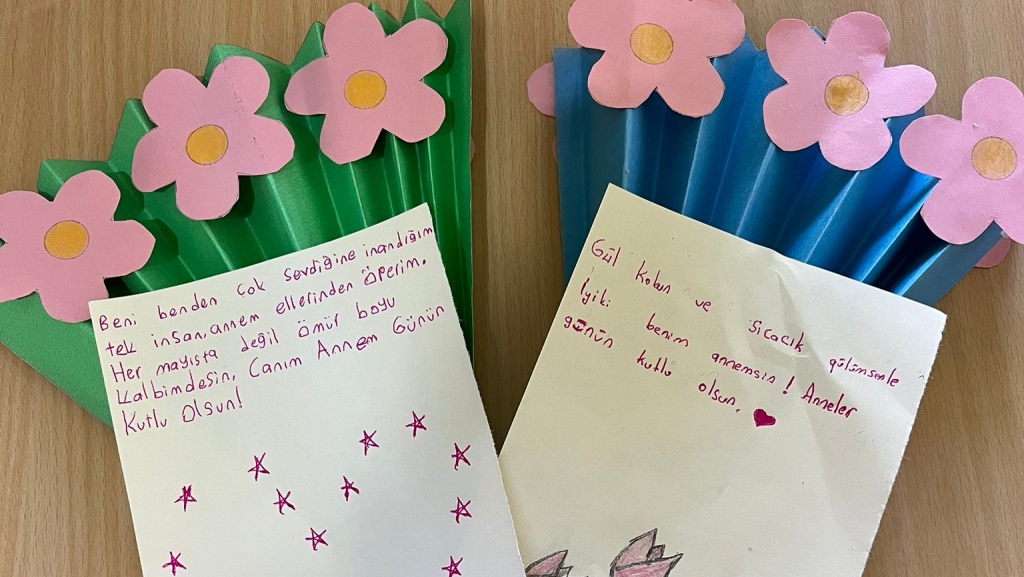 Beni benden çok sevdiğine inandığım
tek insan, annem ellerinden öperim.
Her mayısta değil ömür boyu
Kalbimdesin, Canım Annem Günün
Kutlu Olsun!
Gül kokun ve sıcacık gülümsenle
İyiki benim annemsin! Anneler
günün kutlu olsun.